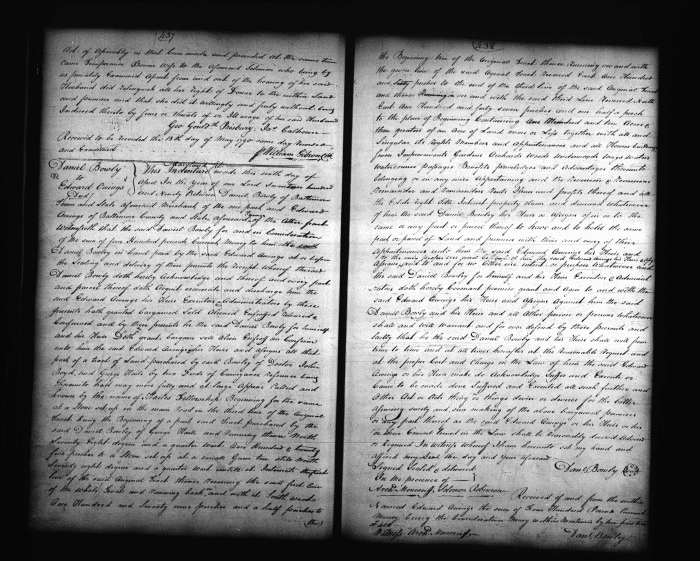 437
Act of Assembly in that Case made and provided At the same time
came Temperance Bowen Wife to the Aforesaid Solomon who being by
us privately Examined Apart from and out of the hearing of her said
Husband did relinquish all her Right of Dower to the within Land
and premises and that she did it willingly and freely without being
Induced thereto by fear or threats of or Ill usage of her said Husband
Geo Gould Presbury Jas Calhoun
Received to be recorded the 13th day of May 1790 same day recorded
and Examined
William Gibson Clk
Daniel Bowly
to
Edward Owings
Deed
Maryland
This Indenture made this sixth day of
April In the Year of our Lord Seventeen hundred
and Ninety Between Daniel Bowly of Baltimore
Town and State aforesaid Merchant of the one part and Edward
Owings of Baltimore County and State Aforesaid of the Other part
Witnesseth that the said Daniel Bowly for and in Consideration
of the sum of Four Hundred pounds Current Money to him the said
Daniel Bowly in hand paid by the said Edward Owings at or before
the Sealing and delivery of these presents the receipt whereof
Daniel Bowly doth hereby Acknowledge and thereof and every part
and parcel thereof doth Acquit exonerate and discharge him the
said Edward Owings his Heirs Executors Administrators by these
presents hath granted Bargained Sold Aliened Enfeoffed released &
Confirmed and by these presents he the said Daniel Bowly for himself
and his Heirs Doth grant Bargain sell Alien Enfeoff and Confirm
unto him the said Edward Owings his Heirs and Assigns all that
part of a tract of Land purchased by said Bowly of Doctor John
Boyd and by two Deeds of Conveyance reference being
thereunto had may more fully and at large Appear Called and
known by the name of Fellowship Beginning for the same
at a stone set up on the main Road in the third line of the Original
Tract being the Beginning of a part said Tract purchased by the
said Daniel Bowly of and Running thence North
Seventy Eight degrees and a quarter West One Hundred & twenty
five perches to a Stone set up at a small Gum tree still North
Seventy eight degrees and a quarter West untill it Intersects the first
line of the said Original Tract thence running the said first line
of the whole Tract and running Each and with it South
One Hundred and Seventy nine perches and a half perches to
the
438
the Beginning tree of the Original Tract thence Running on and with
the given line of the said Original Tract reversed East One Hundred
and Sixty perches to the end of the third line of the said Original Tract
and thence Running on and with the said third Line Reversed North
East One Hundred and forty seven perches and one half a perch
to the place of Beginning Containing One Hundred and ten Acres &
three quarters of an Acre of Land more or Less together with all and
Singular its Rights Members and Appurtenances and all Houses buildings
fences Improvements Gardens Orchards Woods Underwoods ways waters
Watercourses passages Benefits priviledges and advantages thereunto
belonging or in any wise Appertaining and the Reversion & Reversions
Remainder and Remainders Rents Issues and profits thereof and all
the Estate right title Interest property claim and demand whatsoever
of him the said Daniel Bowly his Heirs or Assigns of in or to the
same or any part or parcel thereof to have and to hold the same
part or parcel of Land and premises with them and every of their
Appurtenances unto him the said Edward Owings his Heirs and
Assigns and to and for no Other use Intent or purpose Whatsoever and
the said Daniel Bowly for himself and his Heirs Executors & Administ
rators doth hereby Covenant promise grant and Agree to and with the
said Edward Owings his Heirs and Assigns Against him the said
Daniel Bowly and his Heirs and all Other person or persons Whatsoever
shall and will warrant and for ever defend by these presents and
lastly that he the said Daniel Bowly and his Heirs shall and will from
time to time and at all times hereafter at the reasonable Request and
at the proper Cost and Charge in the Law of him the said Edward
Owings or his Heirs make do Acknowledge Suffer and Execute or
Cause to be made done Suffered and Executed all such further and
Other Act or Acts thing or things device or devices for the better
Assurance surety and sure making of the above bargained premises
or any part thereof as the said Edward Owings or his Heirs or his
or their Council learned in the Law shall be reasonably devised Advised
or Required In Witness whereof I have hereunto set my hand and
affixed my Seal the day and Year Aforesaid
Signed Sealed & delivered
In the presence of
Danl Bowly Seal
Archd Moncrief, Solomon Robinson
Received of and from the within
Named Edward Owings the sum of Four Hundred Pounds Current
Money being the Consideration Money within Mentioned by him paid
Witness Archd Moncrief
Danl Bowly